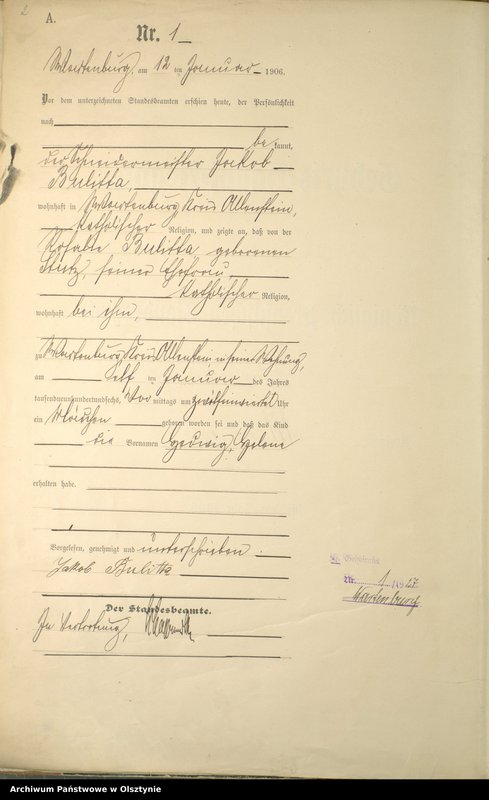 2
A.
Nr. 1
Wartenburg, am 12 ten Januar 1906.
Vor dem unterzeichneten Standesbeamten erschien heute, der Persönlichkeit
nach
be kannt,
der Schneidermeister Jakob
Bulitta,
wohnhaft in Wartenburg Kreis Allenstein,
katholischer Religion, und zeigte an, daß von der
Rosalie Bulitta geborenen
seiner Ehefrau
katholischer Religion,
wohnhaft bei ihm,
zu Wartenburg Kreis Allenstein in seiner Wohnung,
am elf ten Januar des Jahres
tausendneunhundertundsechs, Vor mittags um Uhr
ein Mädchen geboren worden sei und daß das Kind
die Vornamen Hedwig, Helene
erhalten habe.
Vorgelesen, genehmigt und unterschrieben.
Jakob Bulitta
Der Standesbeamte.
In Vertretung,
Nr. 1/1927
Wartenburg
Archiwum Państwowe w Olsztynie